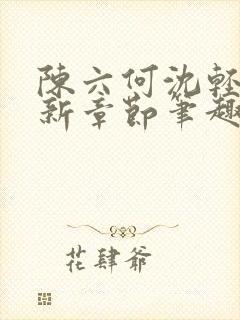 陳六何沈輕
新章節筆趣
花肆爺